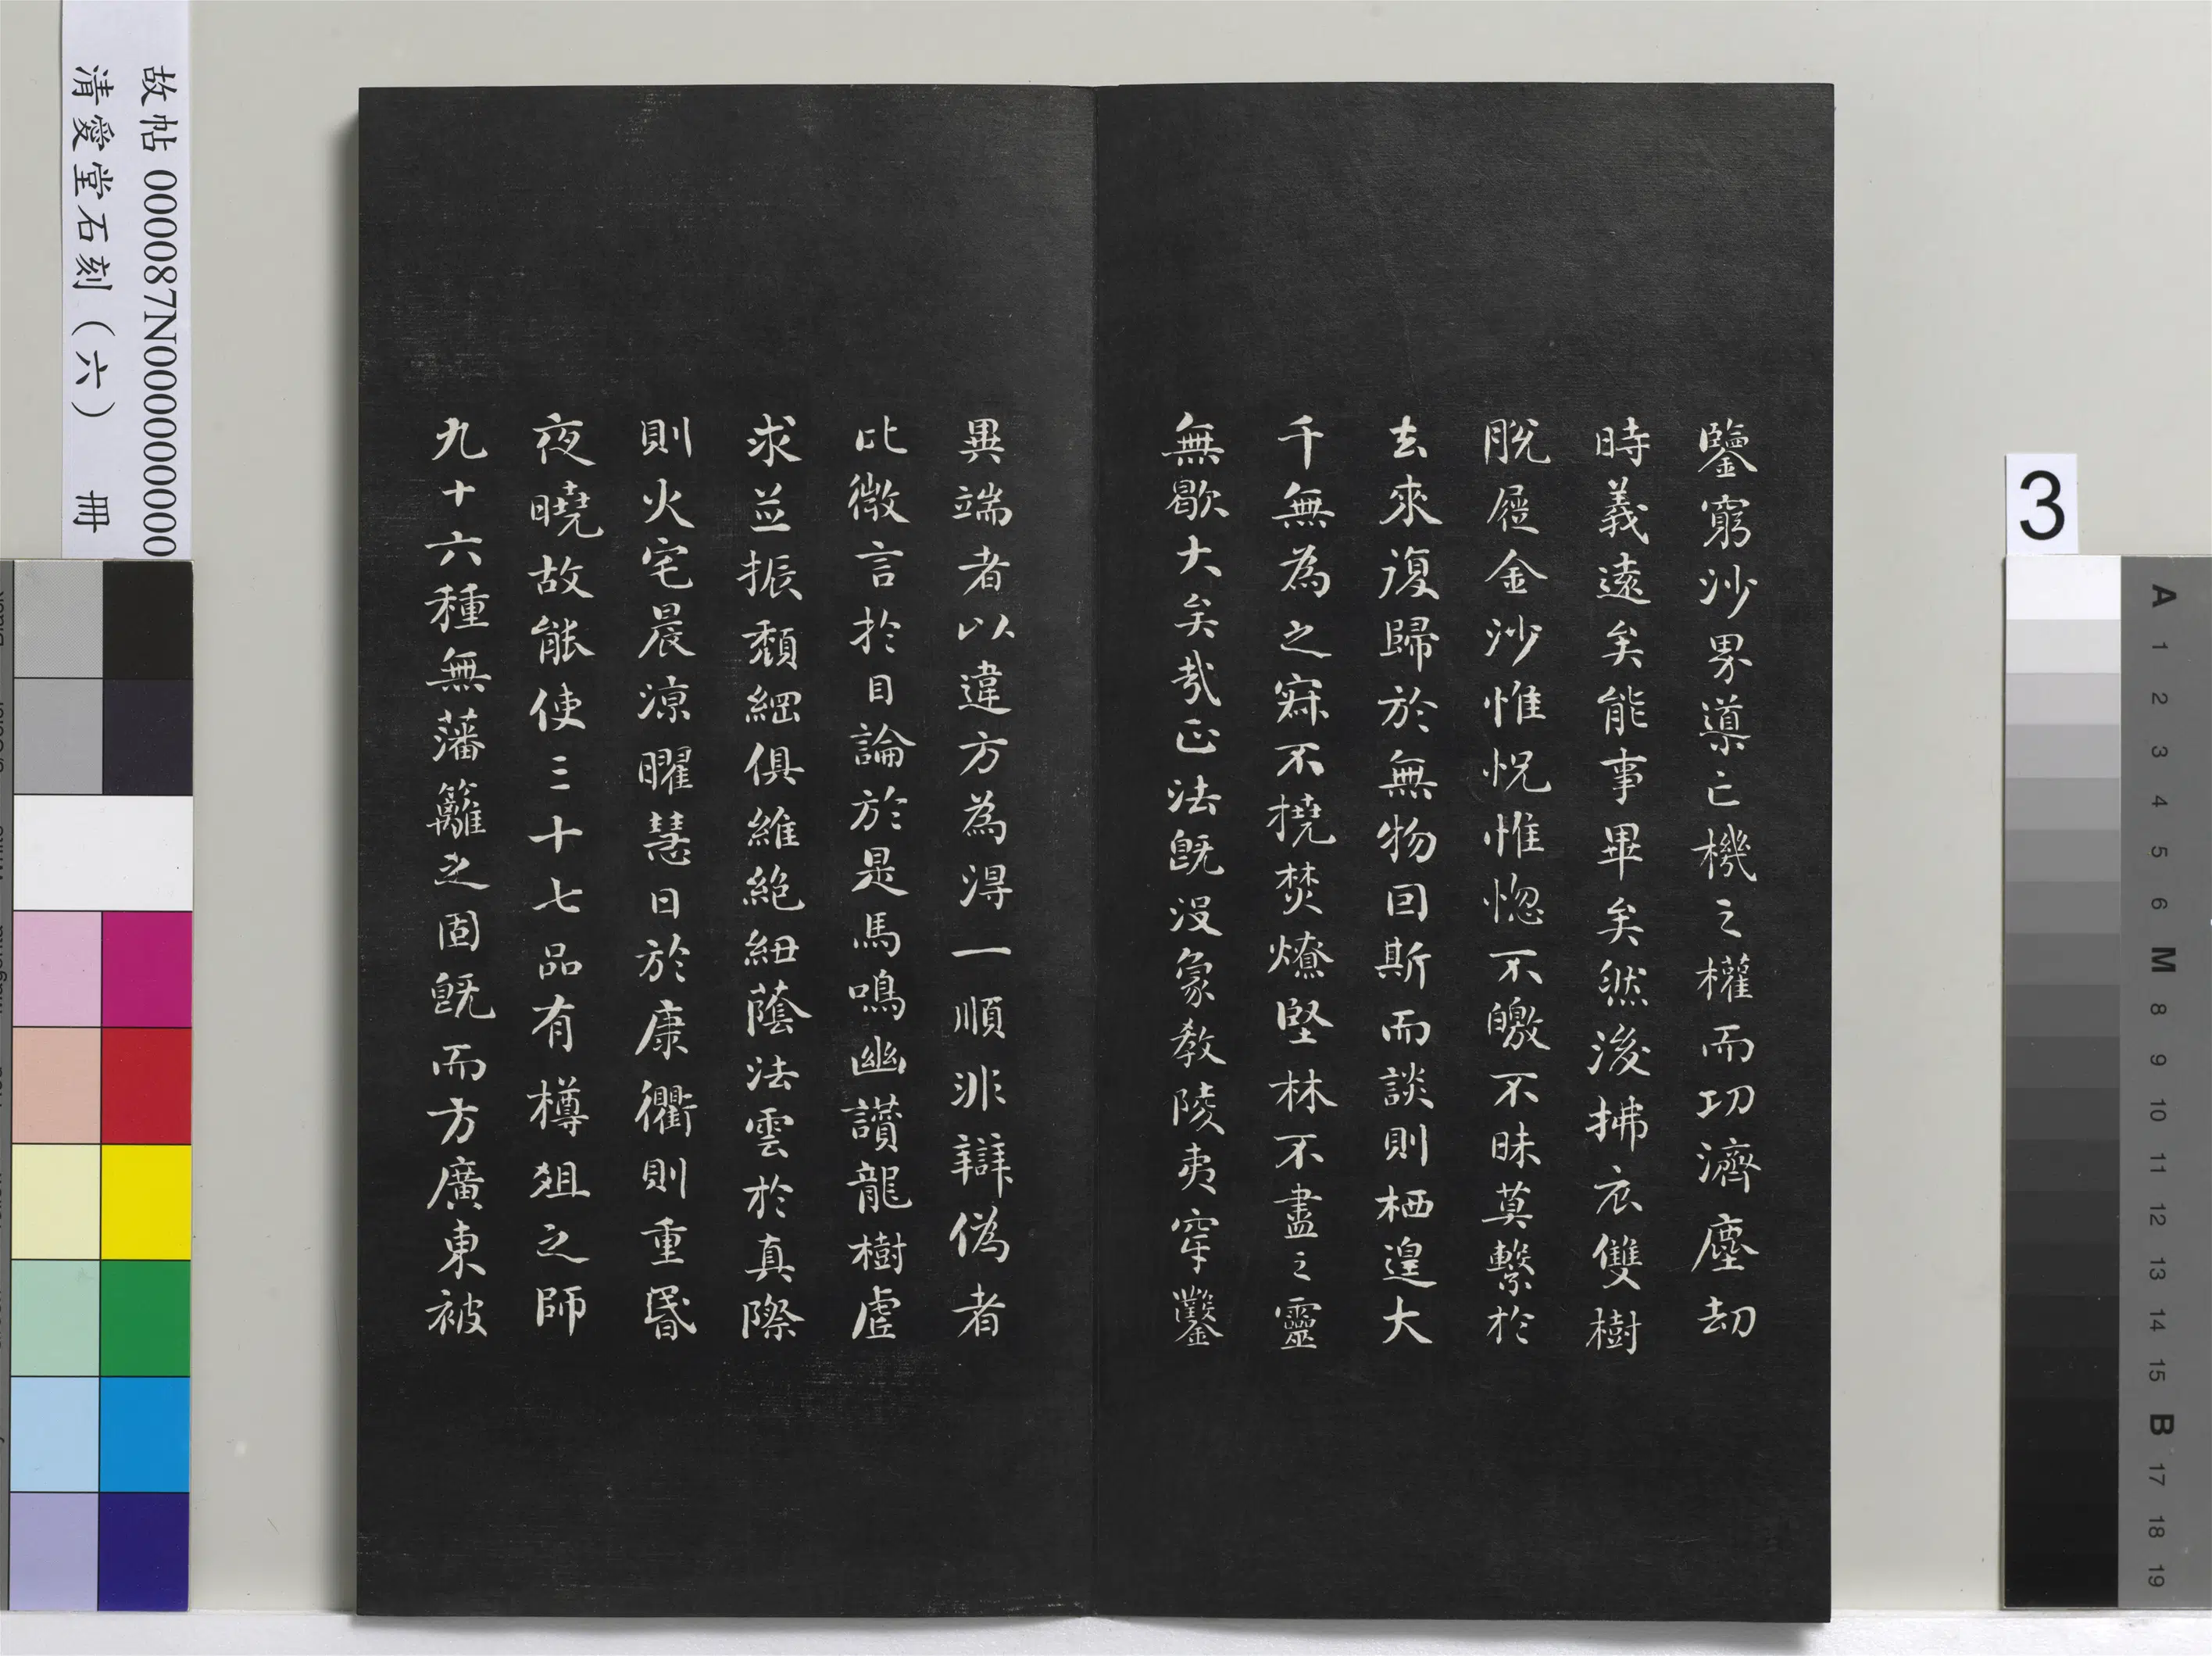 鑒窮沙界導亡機之權而功濟塵劫
時義遠矣能事畢矣然後拂衣雙樹
脫屣金沙惟怳惟惚不皦不昧莫繫於
去來復歸於無物因斯而談則栖遑大
千無為之寂不撓焚燎堅林不盡之靈
無歇大矣哉正法既没象教陵夷穿鑿
異端者以違方為得一順非辯偽者
比微言於目論於是馬鳴幽讚龍樹虛
求並振頹綱俱維絕紐蔭法雲於真際
則火宅晨涼曜慧日於康衢則重昏
夜曉故能使三十七品有樽俎之師
九十六種無藩籬之固既而方廣東被
故帖 000087N000000000
清愛堂石刻（六） 冊
3
A 1 2 3 4 5 6 M 8 9 10 11 12 13 14 15 B 17 18 19